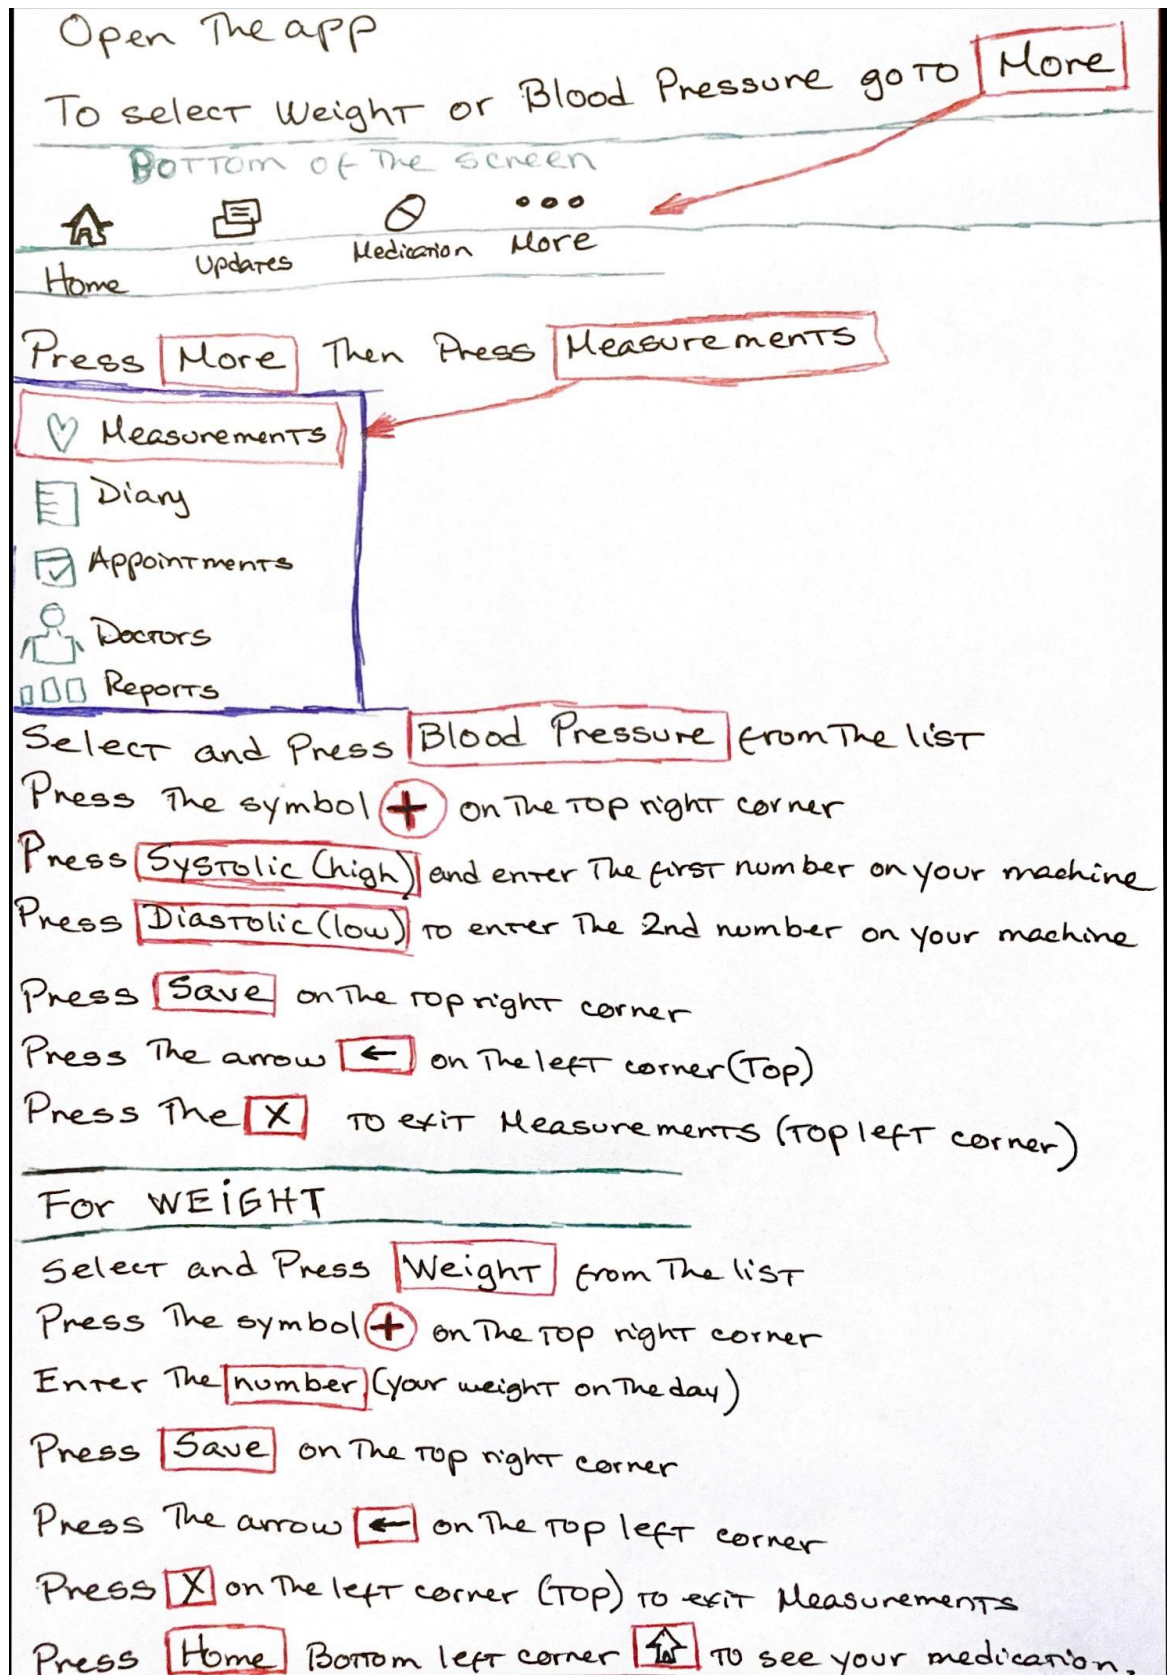 Open The app
To select Weight or Blood Pressure go to More
Bottom of The screen
Home Updates Medication More
Press More Then Press Measurements
Measurements
Diary
Appointments
Doctors
Reports
Select and Press Blood Pressure from The list
Press The symbol + on The top right corner
Press Systolic (high) and enter The first number on your machine
Press Diastolic (low) to enter The 2nd number on your machine
Press Save on The top right corner
Press The arrow ← on The left corner (Top)
Press The X to exit Measurements (top left corner)
For WEiGHT
Select and Press Weight from The list
Press The symbol + on The top right corner
Enter The number (your weight on The day)
Press Save on The top right corner
Press The arrow ← on The top left corner
Press X on The left corner (Top) to exit Measurements
Press Home Bottom left corner to see your medication.